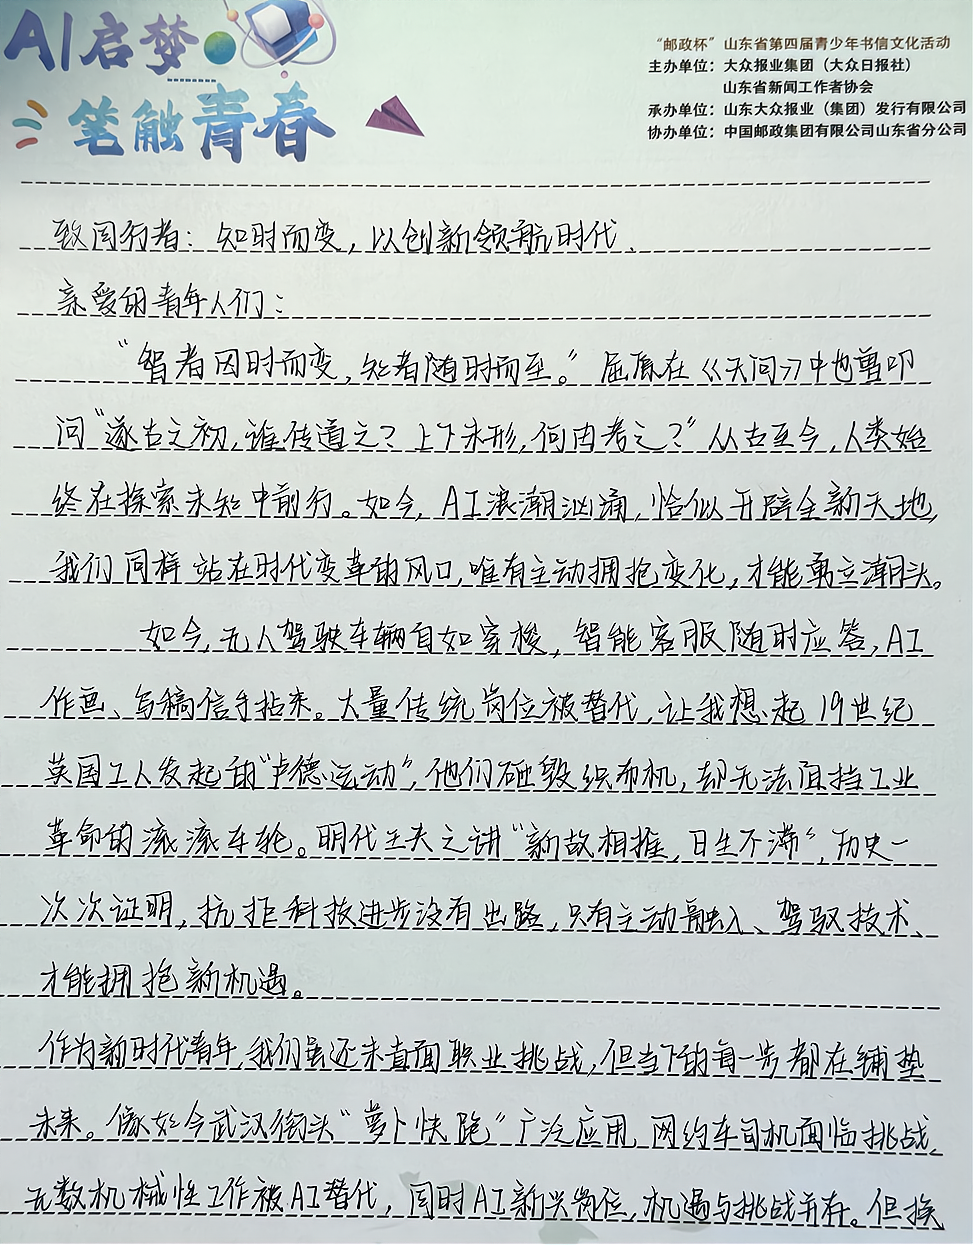 AI启梦
笔触青春
“邮政杯”山东省第四届青少年书信文化活动
主办单位：大众报业集团（大众日报社）
山东省新闻工作者协会
承办单位：山东大众报业（集团）发行有限公司
协办单位：中国邮政集团有限公司山东省分公司
致同行者：知时而变，以创新领航时代.
亲爱的青年人们：
“智者因时而变，知者随时而至。”屈原在《天问》中也曾叩
问“遂古之初，谁传道之？上下未形，何由考之？”从古至今，人类始
终在探索未知中前行。如今，AI浪潮汹涌，恰似开辟全新天地，
我们同样站在时代变革的风口，唯有主动拥抱变化，才能勇立潮头。
如今，无人驾驶车辆自如穿梭，智能客服随时应答，AI
作画、写稿信手拈来。大量传统岗位被替代，让我想起19世纪
英国工人发起的“卢德运动”，他们砸毁织布机，却无法阻挡工业
革命的滚滚车轮。明代王夫之讲“新故相推，日生不滞”，历史一
次次证明，抗拒科技进步没有出路，只有主动融入、驾驭技术、
才能拥抱新机遇。
作为新时代青年，我们虽还未直面职业挑战，但当下的每一步都在铺垫
未来。像如今武汉街头“萝卜快跑”广泛应用，网约车司机面临挑战，
无数机械性工作被AI替代，同时AI新兴岗位，机遇与挑战并存。但挨